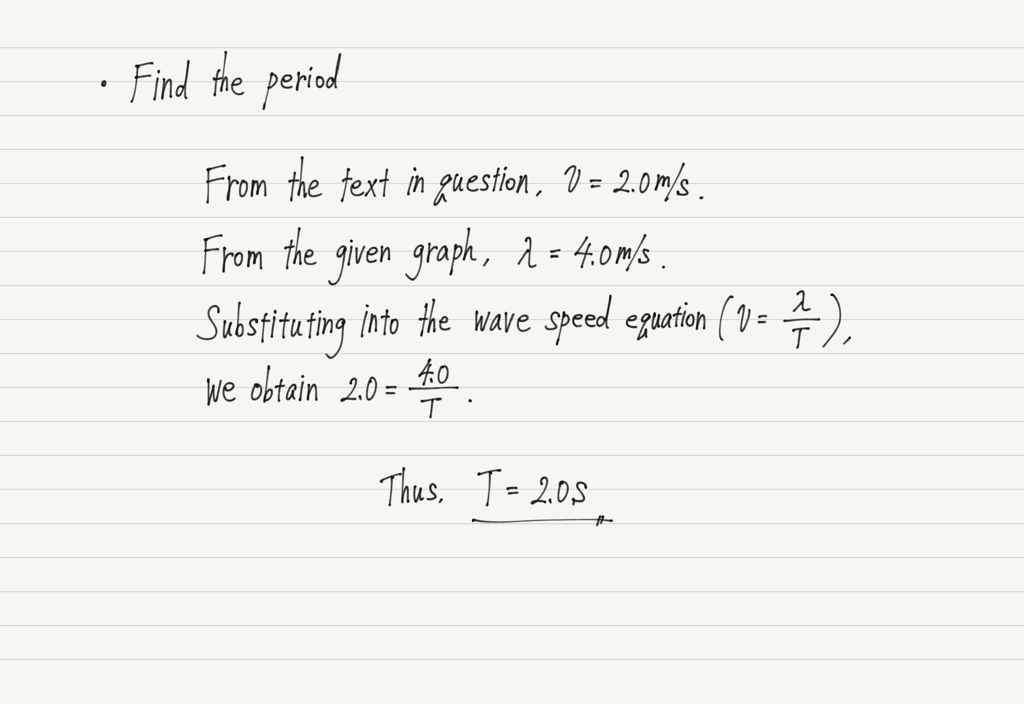 · Find the period
From the text in question, v = 2.0 m/s.
From the given graph, λ = 4.0 m/s.
Substituting into the wave speed equation (v = λ/T),
we obtain 2.0 = 4.0/T.
Thus, T = 2.0 s